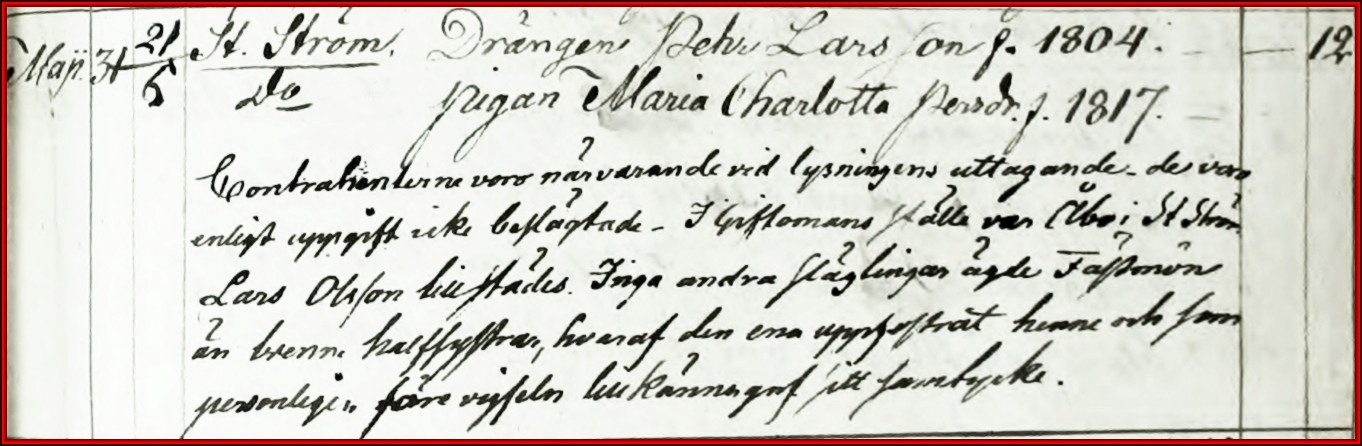 Maji 31 21/6 St. Ström. Drängen Pehr Larsson f. 1804. 12
Do pigan Maria Charlotta Persdr. f. 1817.
Contrahenterne voro närvarande vid lysningens uttagande - de voro
enligt uppgift icke beslägtade - I Giftomans ställe var Åboi St Ström
Lars Olsson tillstädes. Inga andra släglingar ägde Fästmön
än trenne halfsystrar, hvaraf den ena uppfostrat henne och som
personligen före vigseln tillkännagaf sitt samtycke.